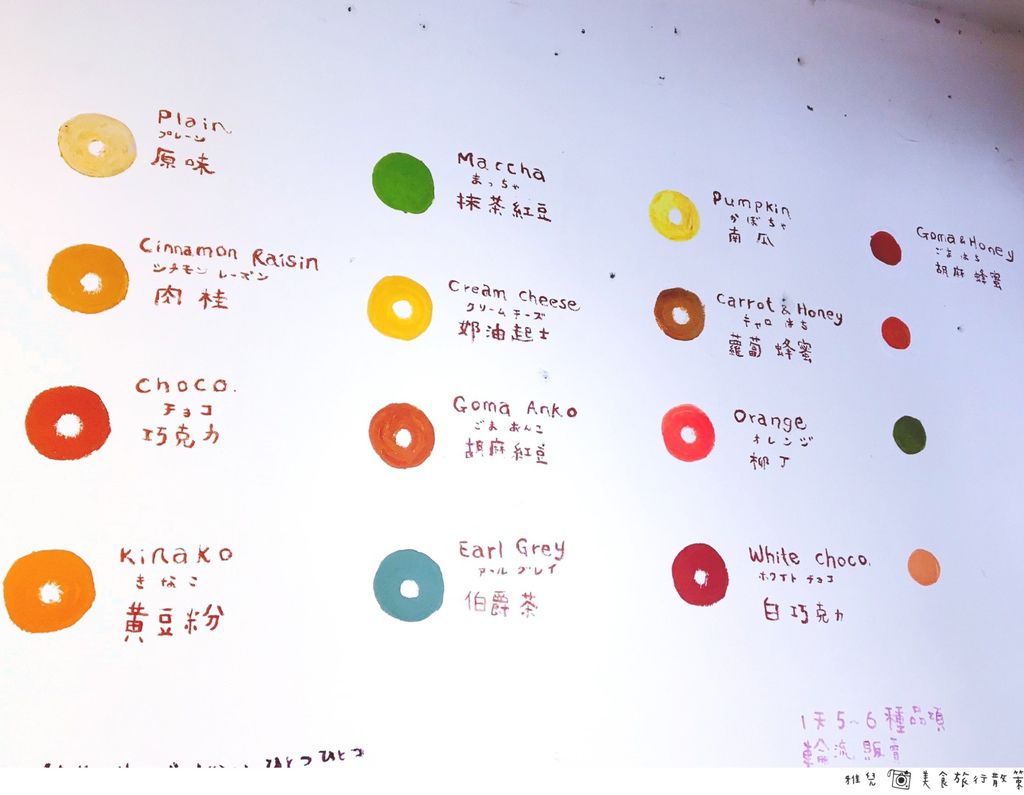 Plain
プレーン
原味
Cinnamon Raisin
シナモン レーズン
肉桂
Choco.
チョコ
巧克力
Kinako
きなこ
黄豆粉
Maccha
まっちゃ
抹茶紅豆
Cream Cheese
クリーム チーズ
奶油起士
Goma Anko
ごま あんこ
胡麻紅豆
Earl Grey
アール グレイ
伯爵茶
Pumpkin
かぼちゃ
南瓜
Carrot & Honey
キャロ はち
蘿蔔 蜂蜜
Orange
オレンジ
柳丁
White choco.
ホワイト チョコ
白巧克力
Goma & Honey
ごま はち
胡麻 蜂蜜
1天5~6種品項
輪流販賣
ひとつひとつ
雅兒 美食旅行散策